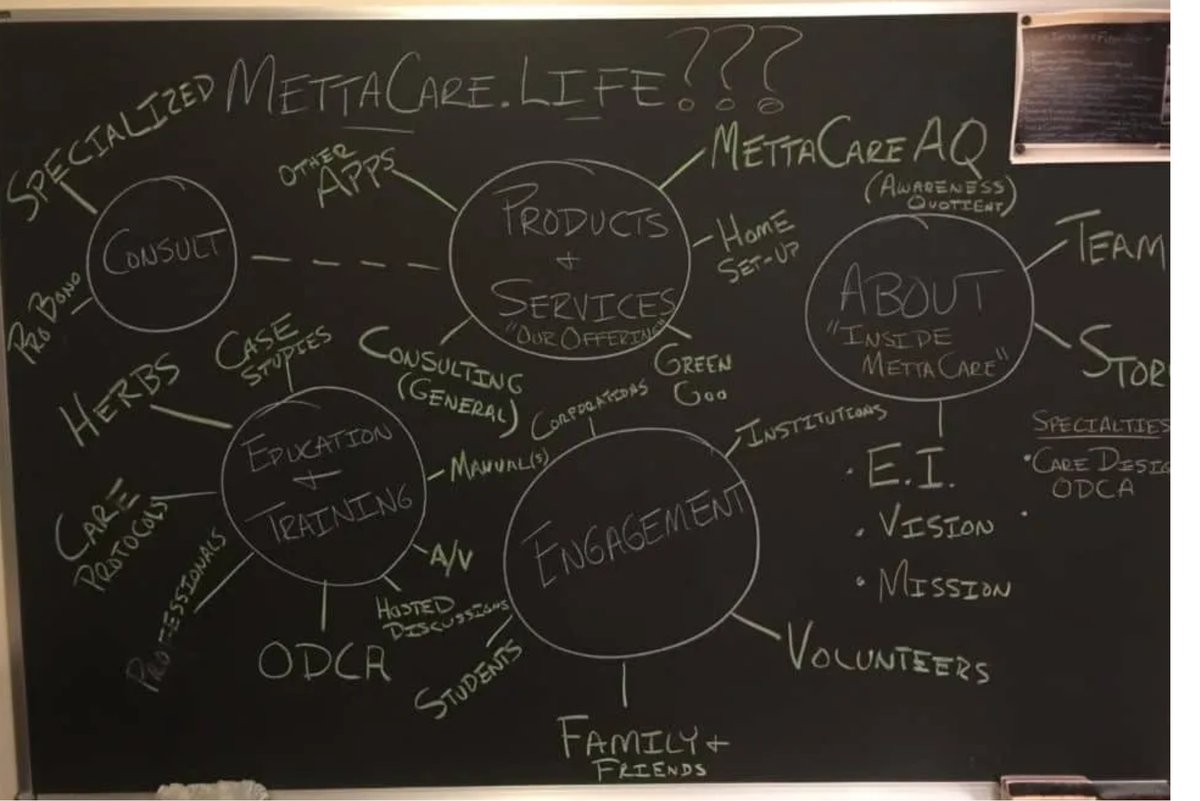 METTACARE.LIFE???
SPECIALIZED
CONSULT
PRO BONO
OTHER
APPS
PRODUCTS
+
SERVICES
"OUR OFFERING"
METTACARE AQ
(AWARENESS
QUOTIENT)
HOME
SET-UP
GREEN
GOO
CONSULTING
(GENERAL)
ABOUT
"INSIDE
METTACARE"
TEAM
STOR
E.I.
VISION
MISSION
SPECIALTIES
• CARE DESIG
ODCA
•
CASE
STUDIES
HERBS
EDUCATION
+
TRAINING
MANUAL(S)
CARE
PROTOCOLS
PROFESSIONALS
ODCA
A/V
HOSTED
DISCUSSIONS
CORPORATIONS
INSTITUTIONS
ENGAGEMENT
STUDENTS
VOLUNTEERS
FAMILY +
FRIENDS